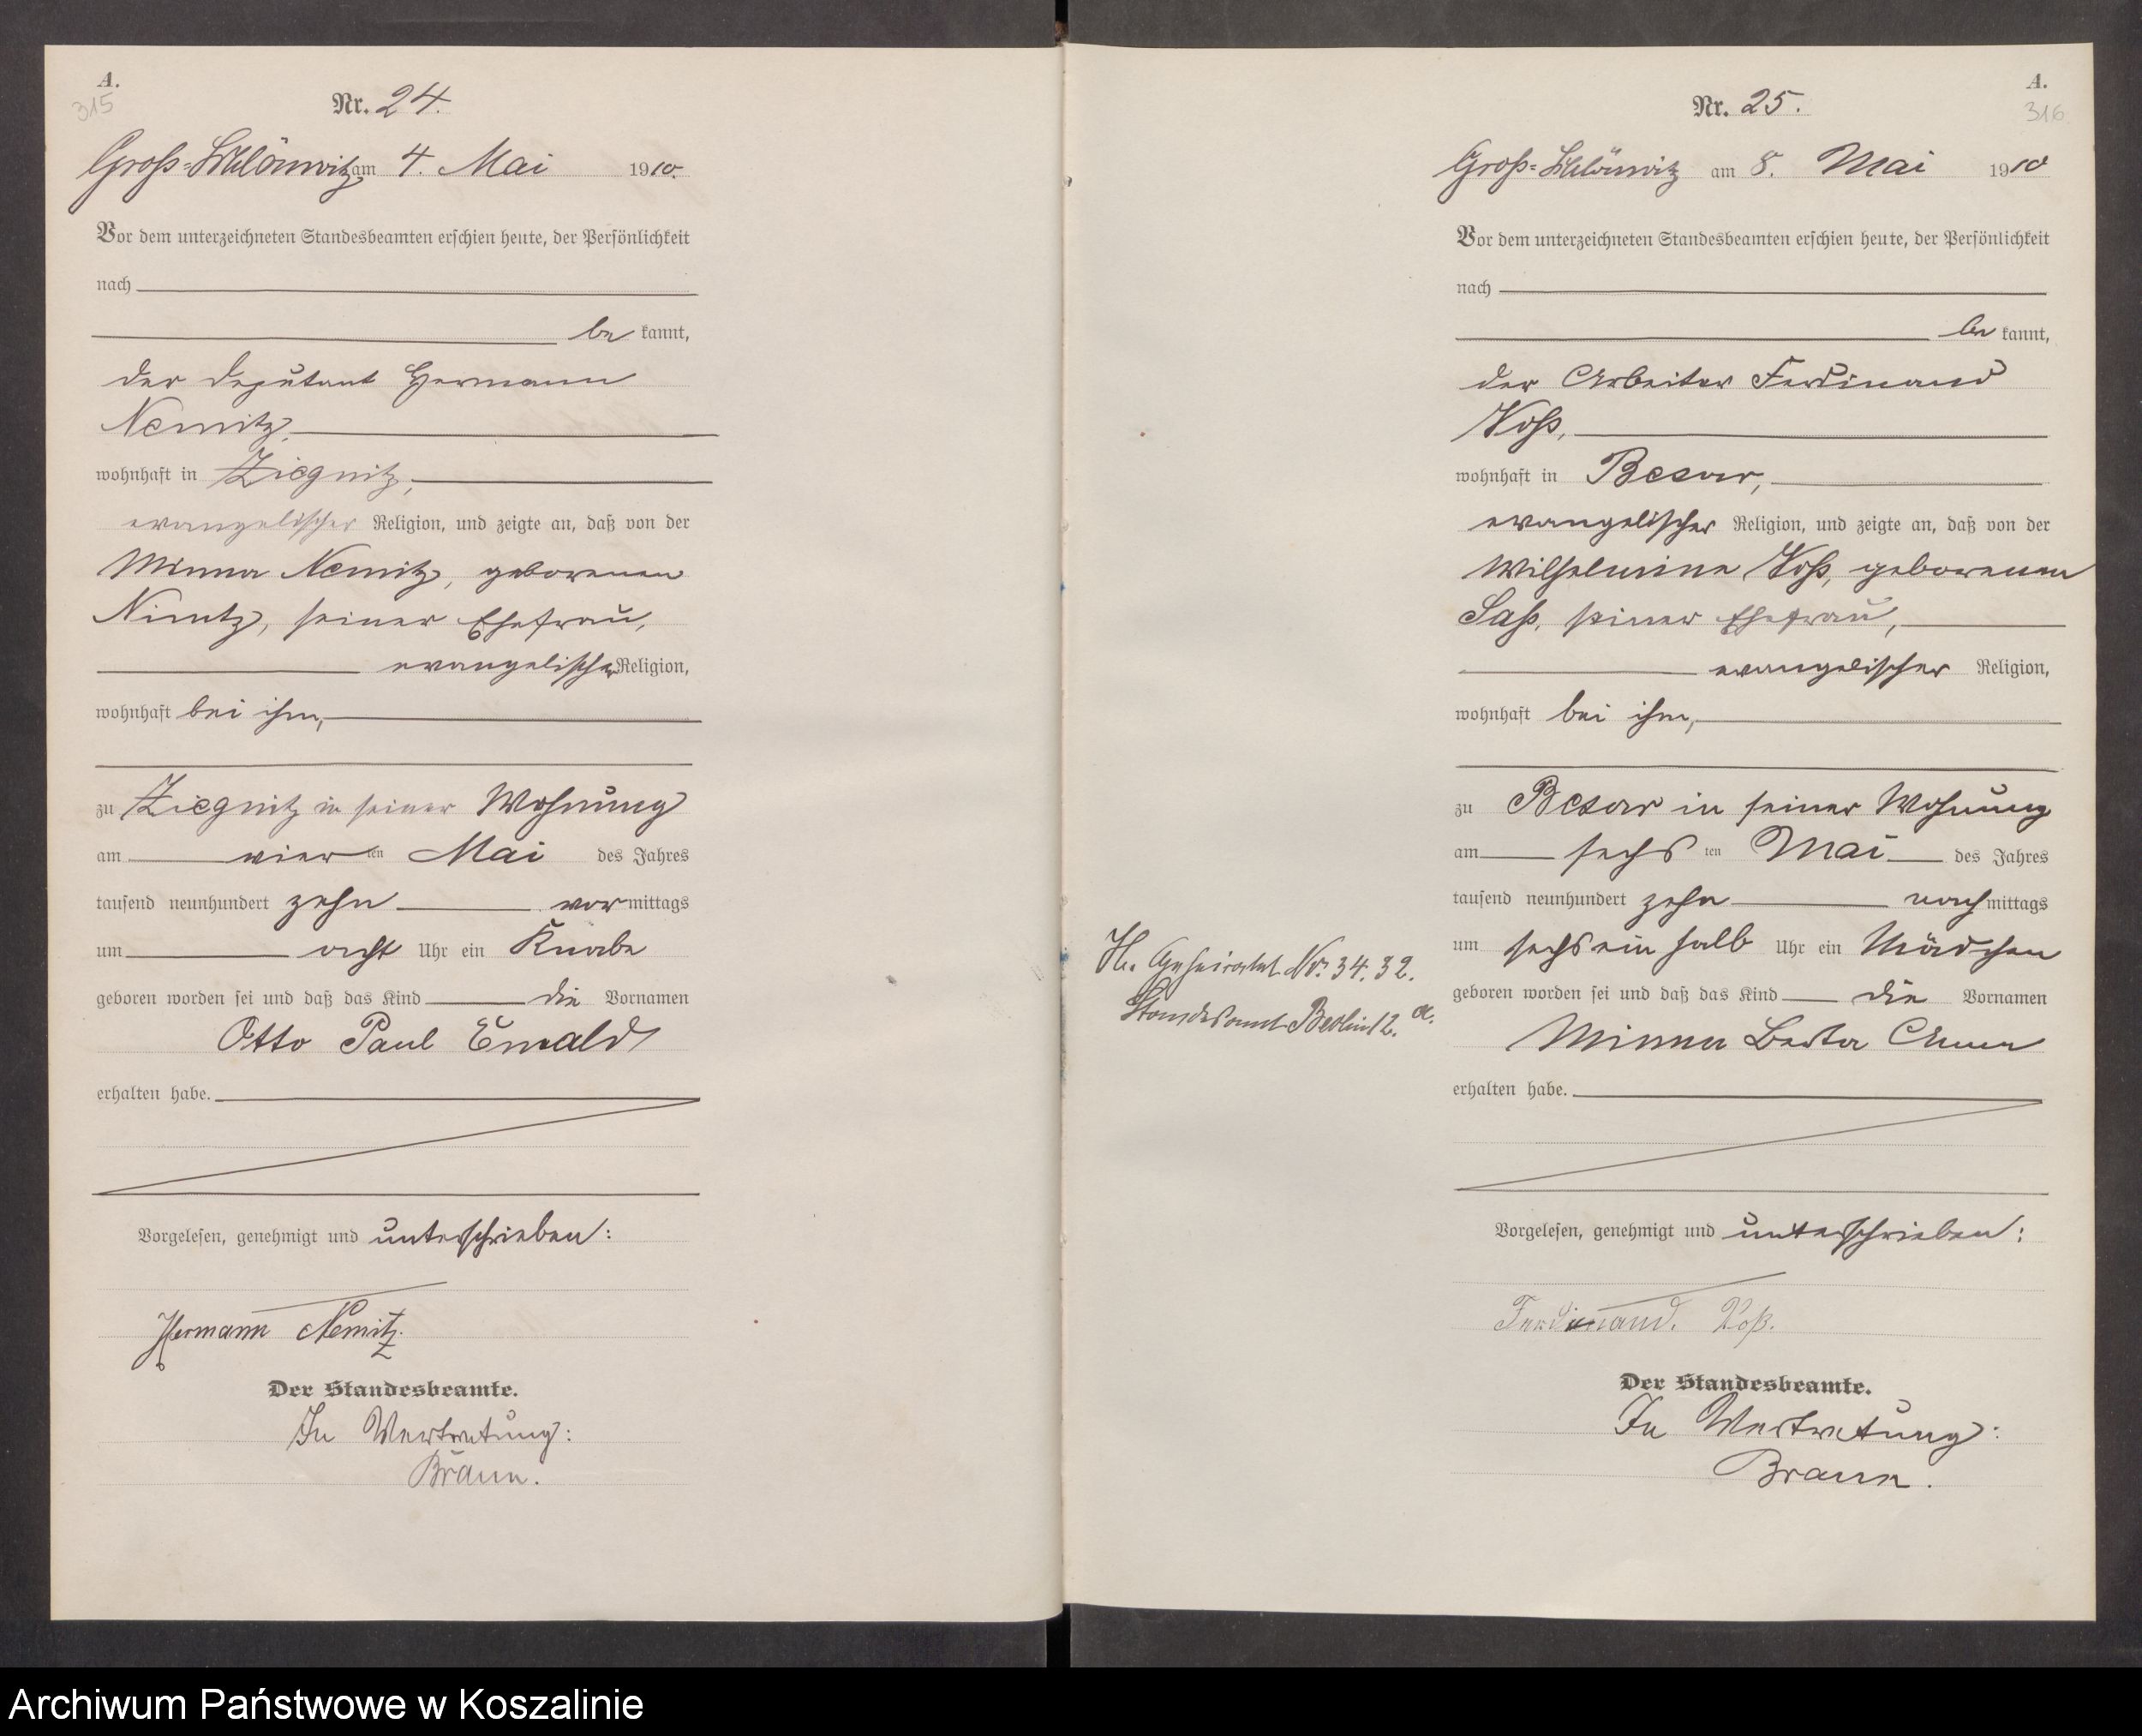 A.
315
Nr. 24.
Groß-Schlönwitz am 4. Mai 1910.
Vor dem unterzeichneten Standesbeamten erschien heute, der Persönlichkeit
nach
be kannt,
der Deputant Hermann
Nemitz,
wohnhaft in Ziegnitz,
evangelischer Religion, und zeigte an, daß von der
Minna Nemitz, geborenen
Nimtz, seiner Ehefrau,
evangelischer Religion,
wohnhaft bei ihm,
zu Ziegnitz in seiner Wohnung
am vier ten Mai des Jahres
tausend neunhundert zehn vormittags
um acht Uhr ein Knabe
geboren worden sei und daß das Kind die Vornamen
Otto Paul Ewald
erhalten habe.
Vorgelesen, genehmigt und unterschrieben:
Hermann Nemitz.
Der Standesbeamte.
In Vertretung:
Braun.
A.
316
Nr. 25.
Groß-Schlönwitz am 8. Mai 1910
Vor dem unterzeichneten Standesbeamten erschien heute, der Persönlichkeit
nach
be kannt,
der Arbeiter Ferdinand
Voß,
wohnhaft in Besow,
evangelischer Religion, und zeigte an, daß von der
Wilhelmine Voß, geborenen
Saß, seiner Ehefrau,
evangelischer Religion,
wohnhaft bei ihm,
zu Besow in seiner Wohnung
am sechs ten Mai des Jahres
tausend neunhundert zehn nachmittags
um sechs ein halb Uhr ein Mädchen
geboren worden sei und daß das Kind die Vornamen
Minna Berta Anna
erhalten habe.
Vorgelesen, genehmigt und unterschrieben:
Ferdinand. Voß.
Der Standesbeamte.
In Vertretung:
Braun.
Geheiratet Nr. 34. 32.
Standesamt Berlin 12. a.
Archiwum Państwowe w Koszalinie